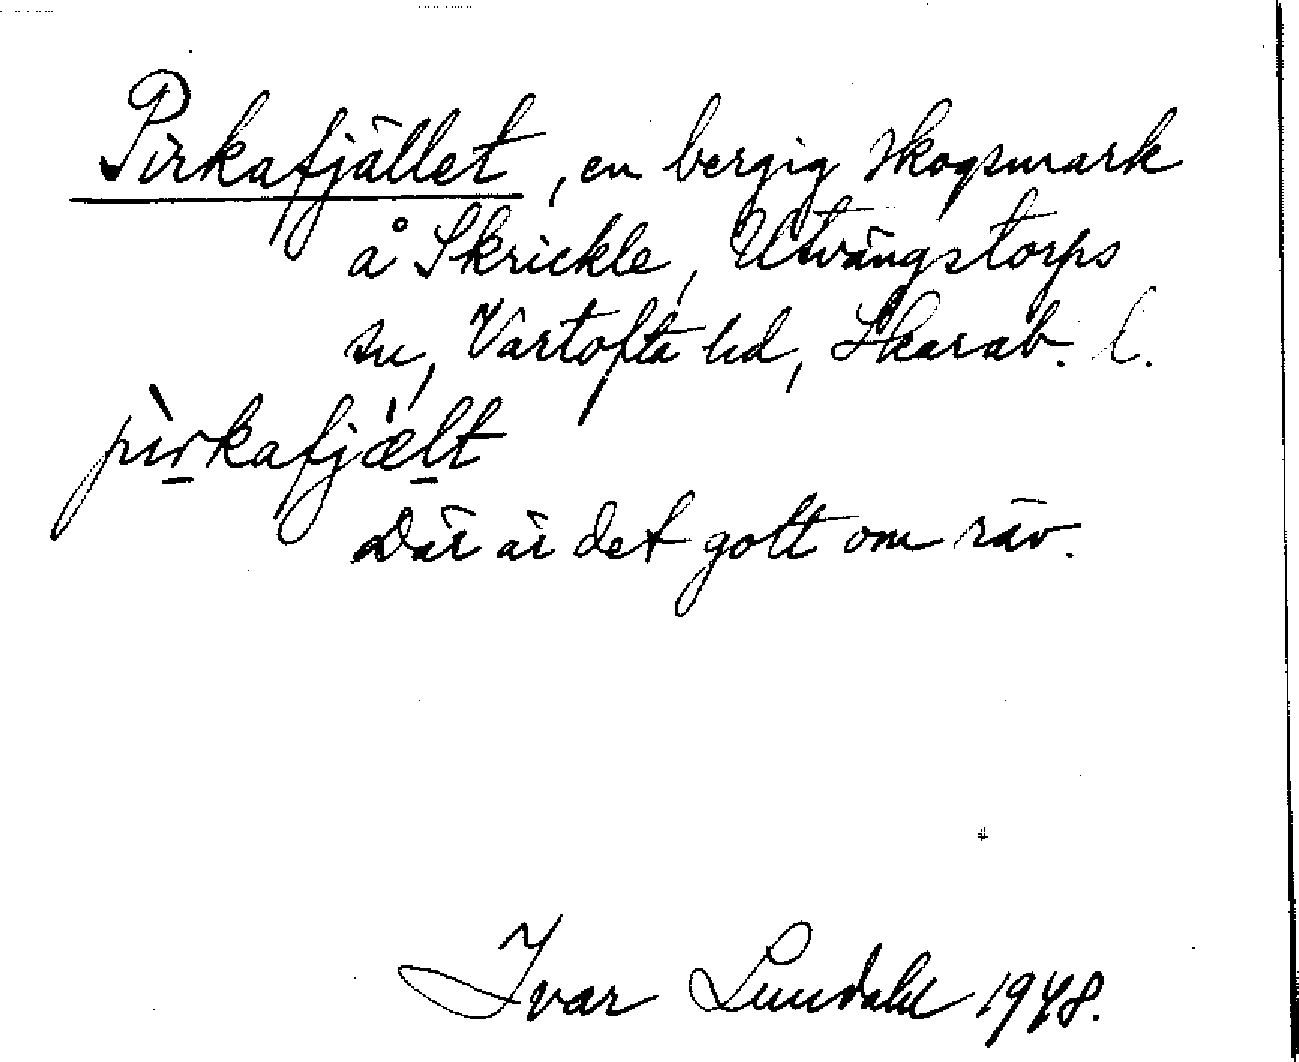 Pirkafjället, en bergig skogsmark
å Skrickle, Utvängstorps
sn, Vartofta hd, Skarab. l.
pìrkafjæ̀lt
Där är det gott om räv.
Ivar Lundahl 1948.